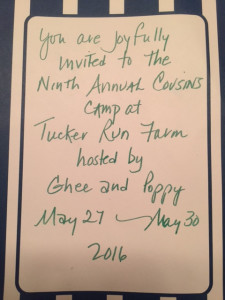 You are Joyfully
invited to the
Ninth Annual Cousins
Camp at
Tucker Run Farm
hosted by
Ghee and Poppy
May 27 – May 30
2016